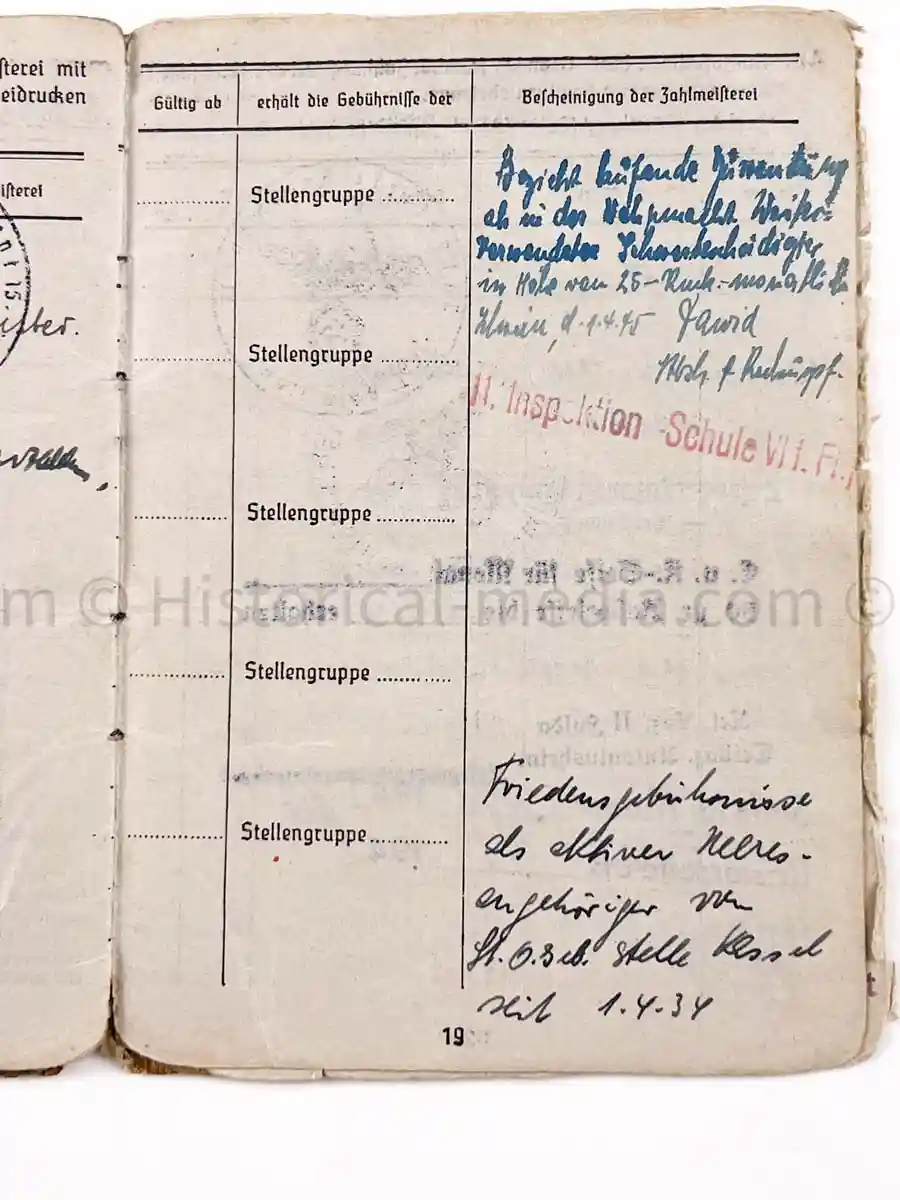 sterei mit
eidrucken
isterei
15.
Gültig ab
erhält die Gebührnisse der
Bescheinigung der Zahlmeisterei
Stellengruppe
Stellengruppe
Stellengruppe
Stellengruppe
Stellengruppe
Bezieht laufende Zuwendung
als in der Wehrmacht Weiter-
verwendeter Schwerbeschädigter
in Höhe von 25 monatlich
d. 1.4.45 David
11. Inspektion Schule VI f. Fl.
© Historical-media.com ©
Friedensgebührnisse
als aktiver Heeres-
angehöriger von
St. O. Geb. Stelle Kassel
seit 1.4.34
19